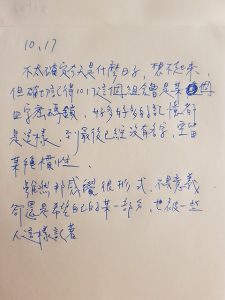 10,17
不太確定今天是什麼日子，想不起來，
但確切記得1017這個組合會是某個
四字密碼鎖，好多好多的記憶都
是這樣，到最後已經沒有名字，空留
某種慣性。
雖然那感覺很形式，不具意義
卻還是希望自己的某一部分，也被一些
人這樣記著